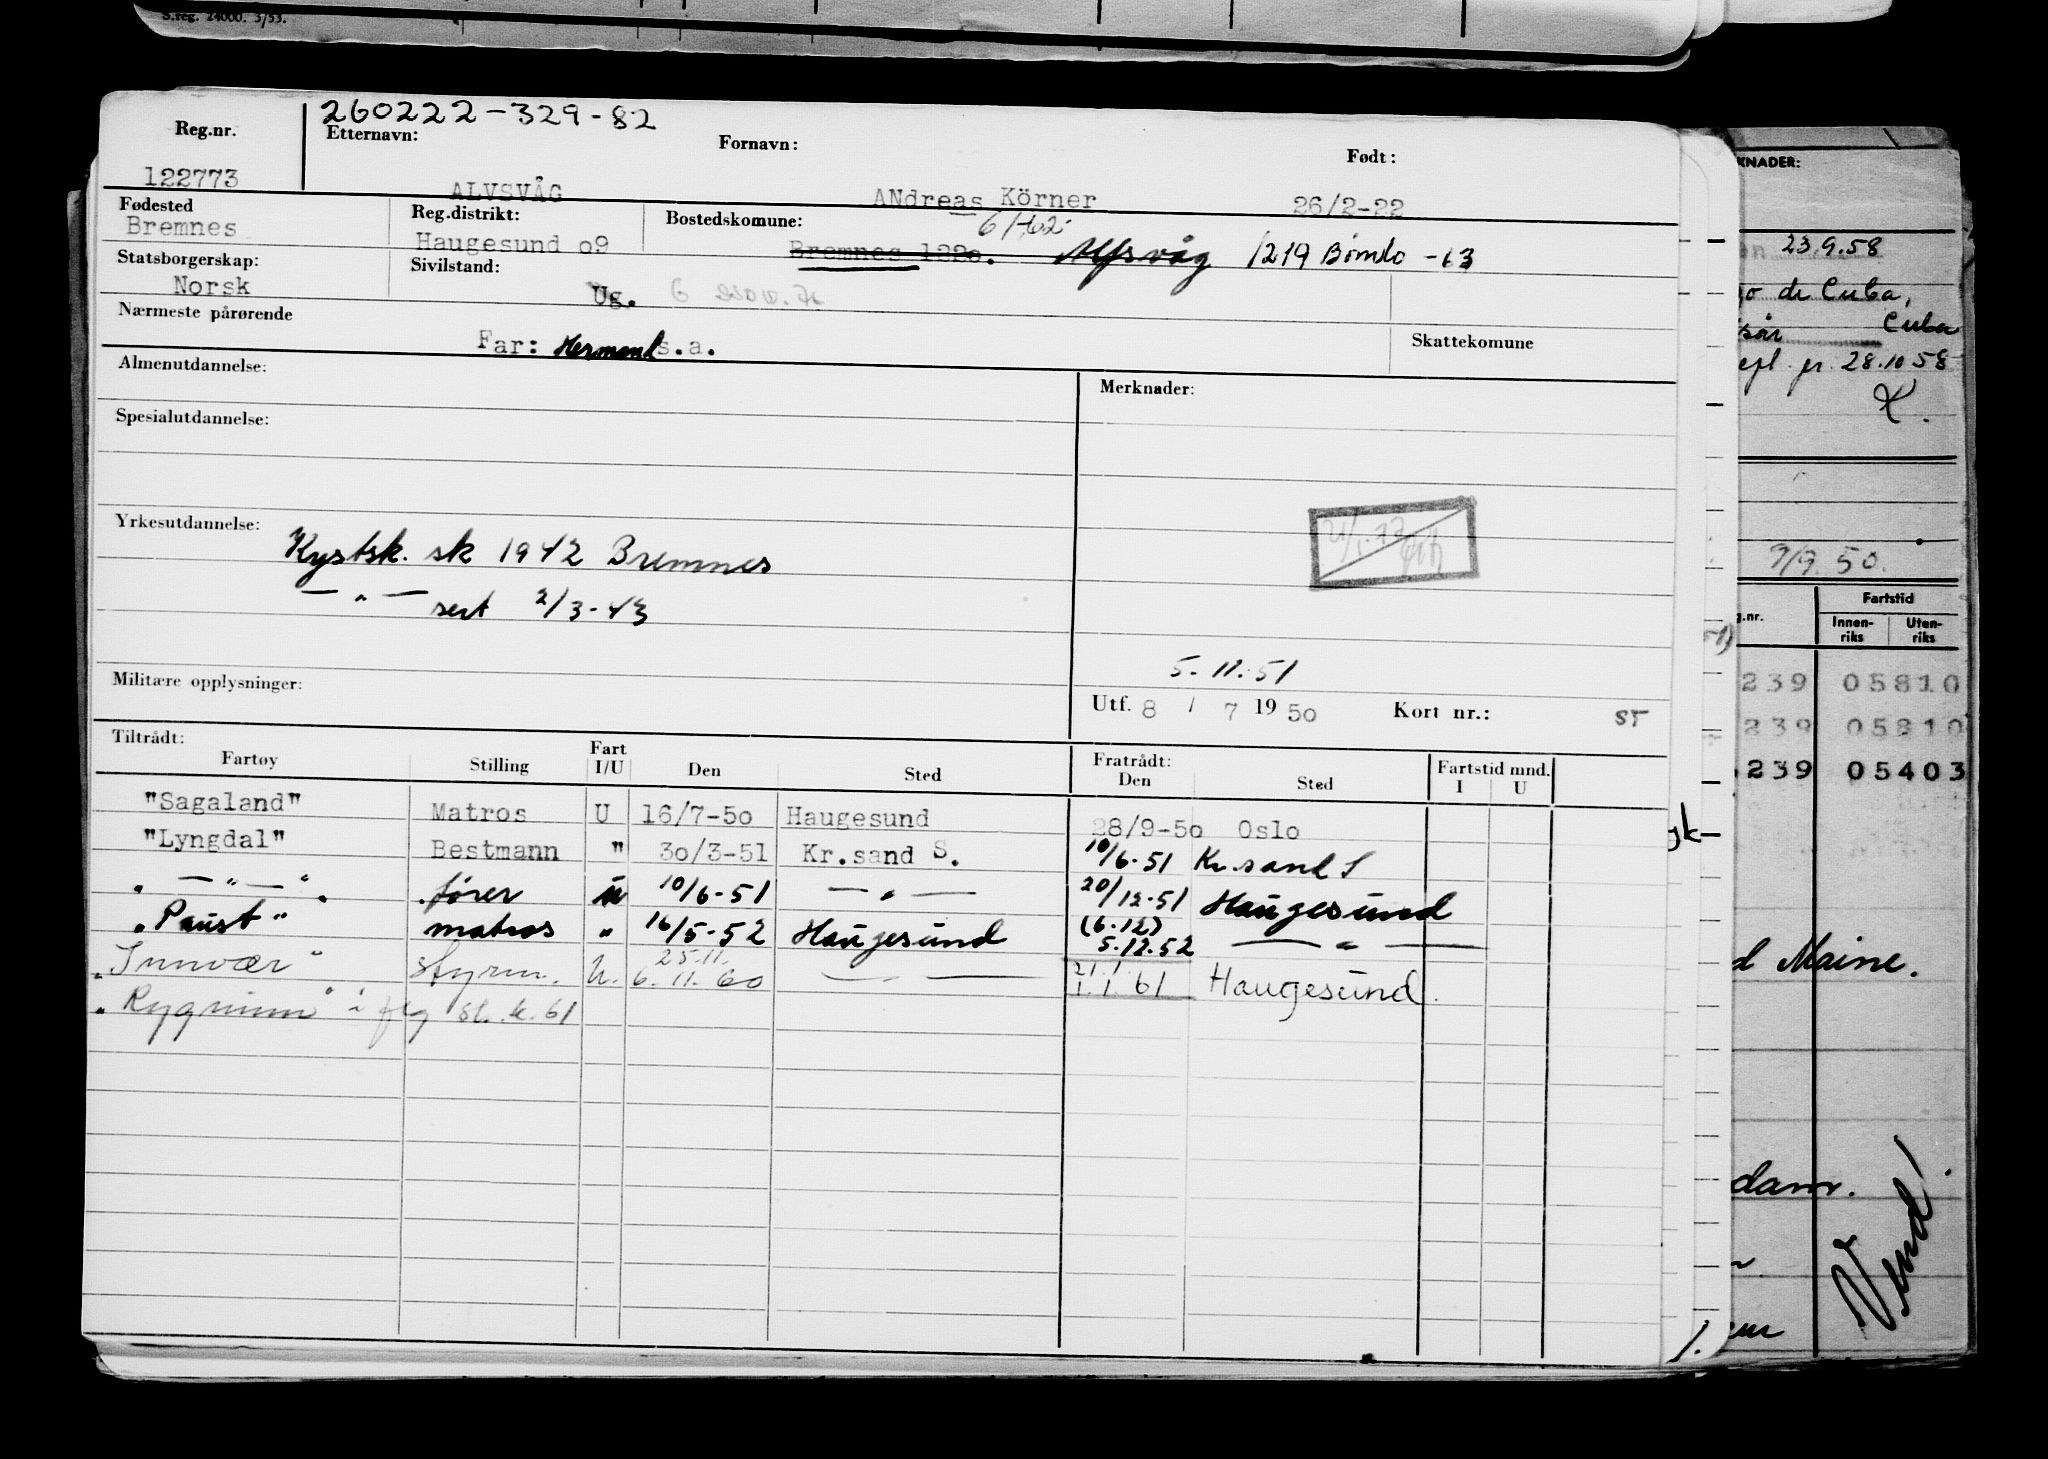 S.reg. 24000. 3/53.
260222-329-82
Reg.nr. Etternavn: Fornavn: Født:
122773 ALVSVÅG ANdreas Körner 26/2-22
Fødested Reg.distrikt: Bostedskomune: 6/-62
Bremnes Haugesund o9 Bremnes 122o. Alfsvåg 1219 Bømlo -63
Statsborgerskap: Sivilstand:
Norsk Ug. 6
Nærmeste pårørende Skattekomune
Far: Hermand s.a.
Almenutdannelse: Merknader:
Spesialutdannelse:
Yrkesutdannelse:
Kystsk. sk 1942 Bremnes
— " — sert 2/3-43
5.11.51
Militære opplysninger: Utf. 8 / 7 19 50 Kort nr.: ST
Tiltrådt: Fratrådt:
Fartøy Stilling Fart I/U Den Sted Den Sted Fartstid mnd. I U
"Sagaland" Matros U 16/7-50 Haugesund 28/9-50 Oslo
"Lyngdal" Bestmann " 30/3-51 Kr.sand S. 10/6-51 Kr.sand S
" — " — " fører u 10/6-51 — " — 20/12-51 Haugesund
"Paust" matros " 16/5-52 Haugesund (6.12) 5.12.52 — " —
"Innvær" styrm. U. 25.11. 6.11.60 — " — 21/1. 1.1.61 Haugesund.
"Rygnunn" i flg sl. k. 61
KNADER:
23.9.58
go de Cuba,
Cuba
efl. pr. 28.10 58
9/9. 50.
g.nr. Fartstid
Innen-riks Uten-riks
239 05810
239 05810
239 05403
d Maine.
dam.
Vend!